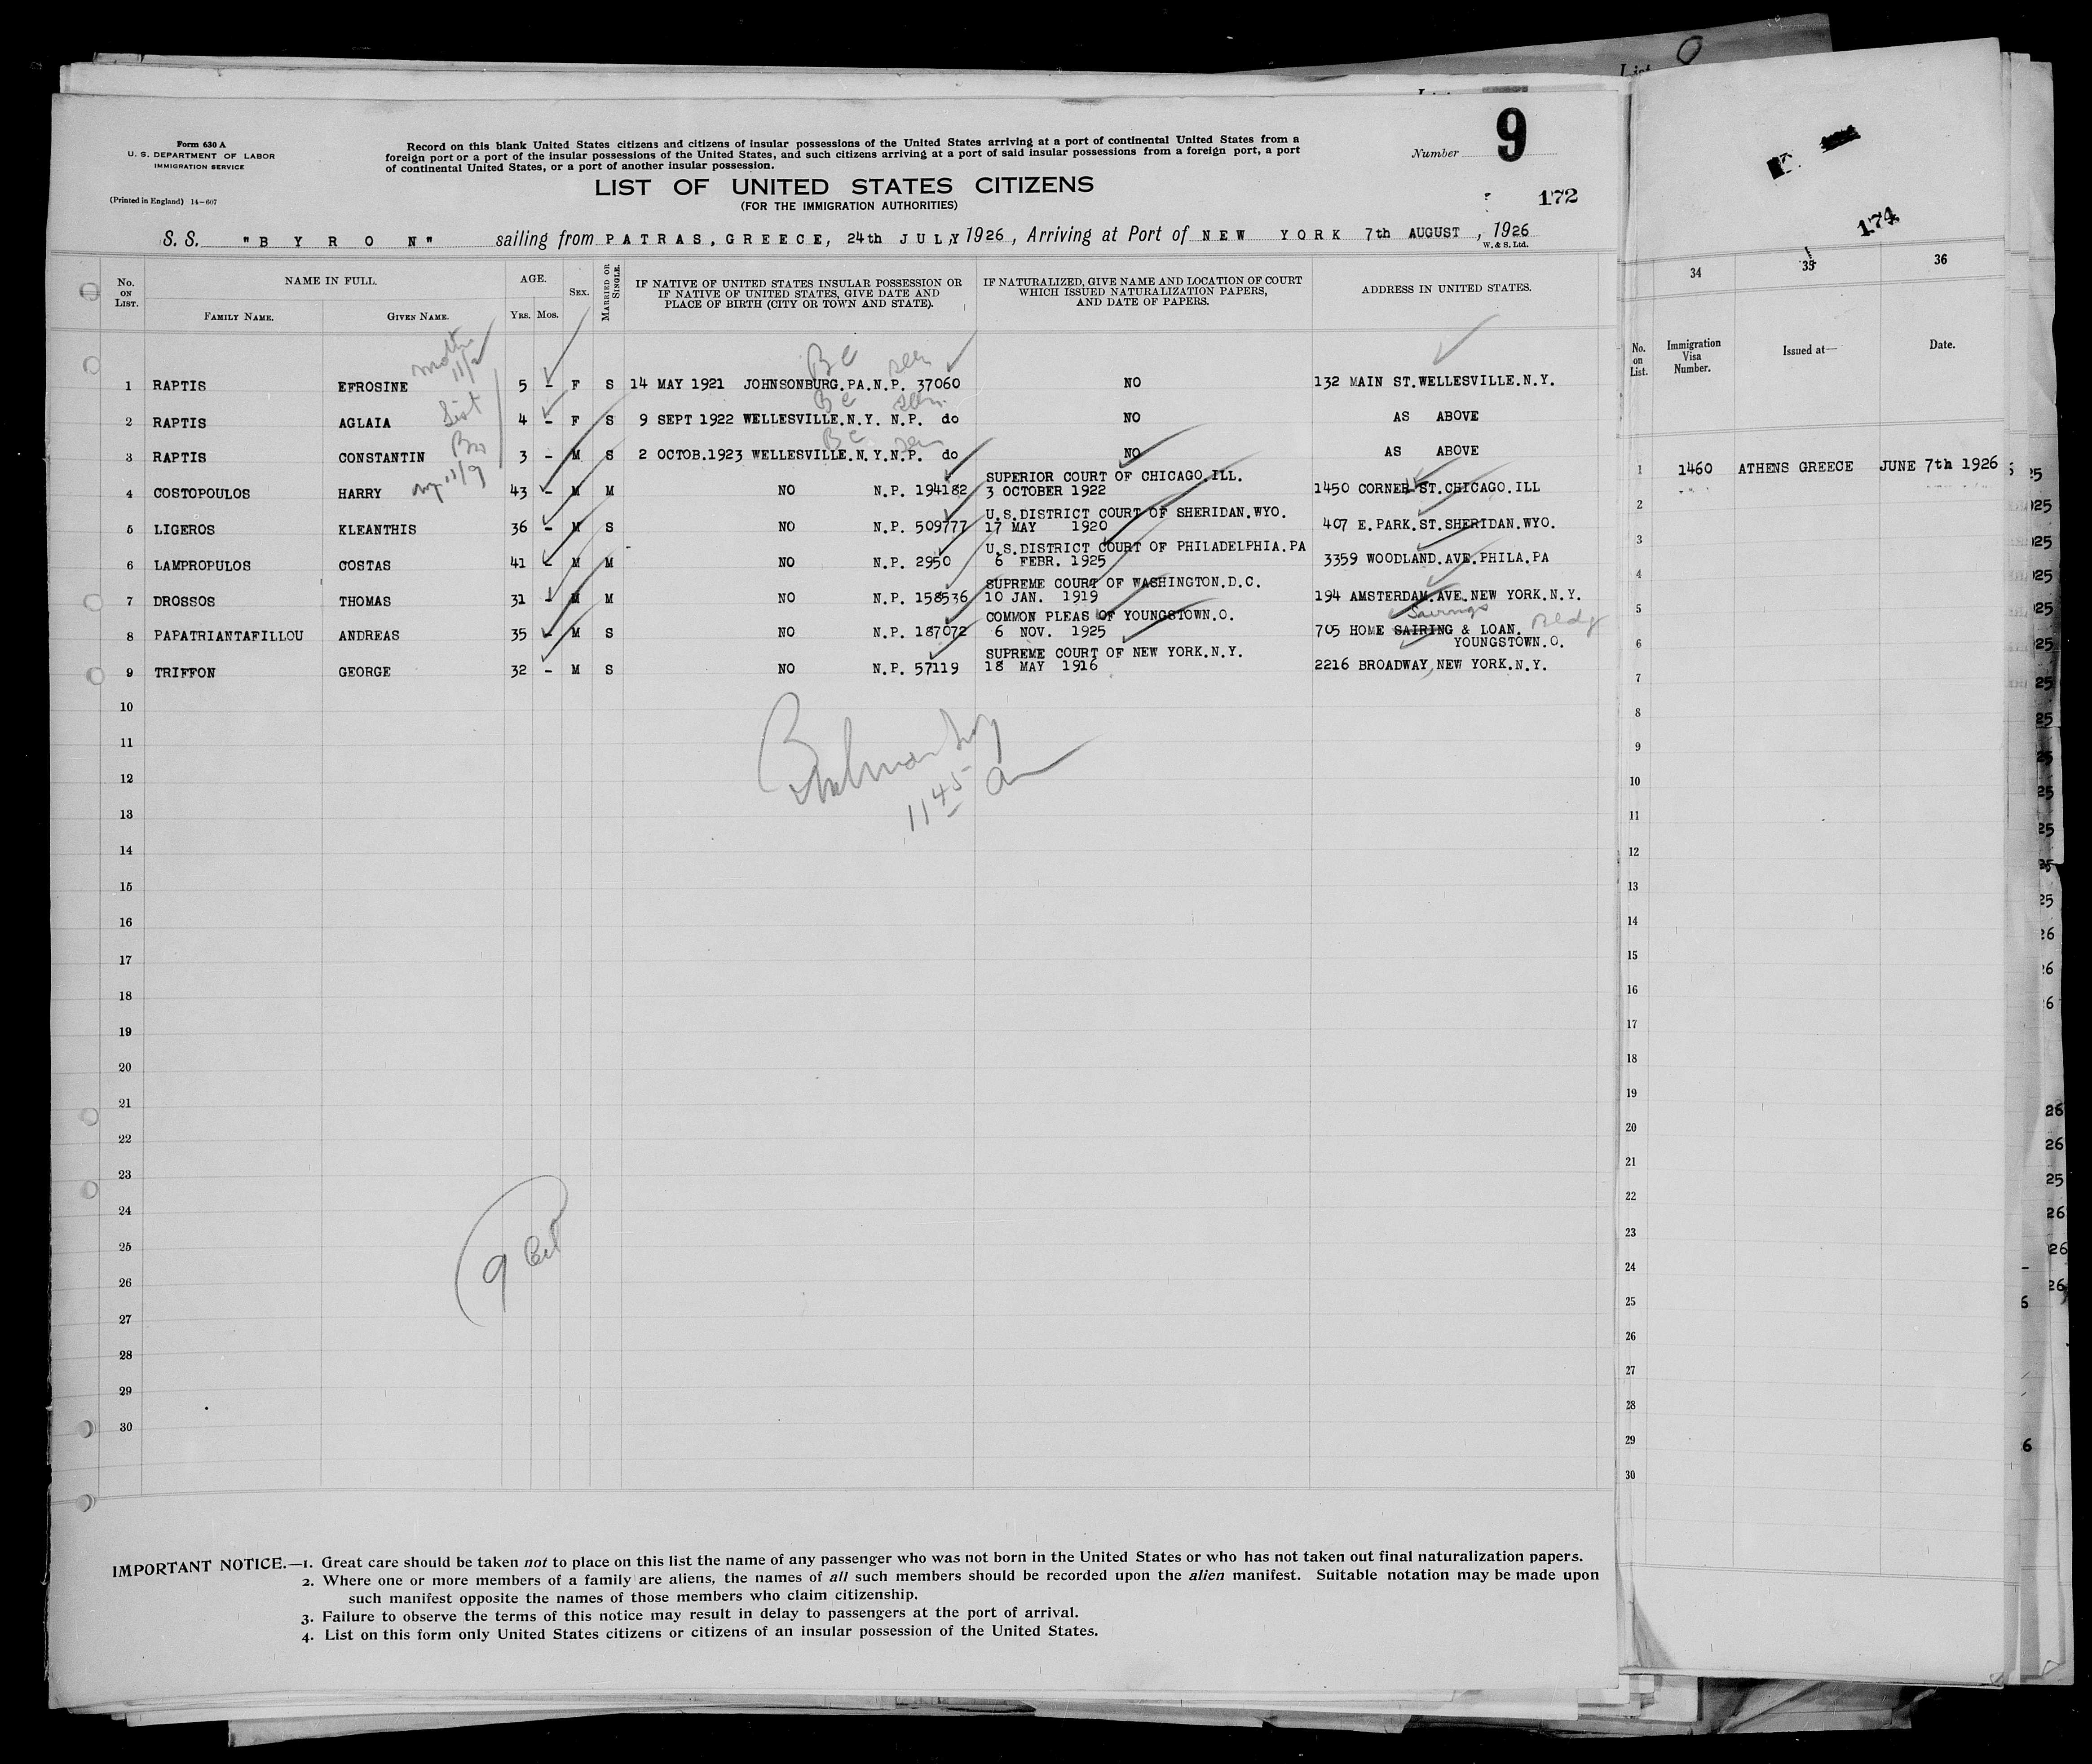 Form 630 A
U. S. DEPARTMENT OF LABOR
IMMIGRATION SERVICE
(Printed in England) 14-607
Record on this blank United States citizens and citizens of insular possessions of the United States arriving at a port of continental United States from a
foreign port or a port of the insular possessions of the United States, and such citizens arriving at a port of said insular possessions from a foreign port, a port
of continental United States, or a port of another insular possession.
Number 9
LIST OF UNITED STATES CITIZENS
(FOR THE IMMIGRATION AUTHORITIES)
172
S. S. "BYRON" sailing from PATRAS, GREECE, 24th JULY, 1926, Arriving at Port of NEW YORK 7th AUGUST, 1926
W. & S. Ltd.
No. ON LIST. NAME IN FULL. AGE. SEX. MARRIED OR SINGLE. IF NATIVE OF UNITED STATES INSULAR POSSESSION OR IF NATIVE OF UNITED STATES, GIVE DATE AND PLACE OF BIRTH (CITY OR TOWN AND STATE). IF NATURALIZED, GIVE NAME AND LOCATION OF COURT WHICH ISSUED NATURALIZATION PAPERS, AND DATE OF PAPERS. ADDRESS IN UNITED STATES.
FAMILY NAME. GIVEN NAME. YRS. MOS.
BC seen
1 RAPTIS EFROSINE 5 - F S 14 MAY 1921 JOHNSONBURG.PA.N.P. 37060 NO 132 MAIN ST.WELLESVILLE.N.Y.
BC seen
2 RAPTIS AGLAIA 4 - F S 9 SEPT 1922 WELLESVILLE.N.Y. N.P. do NO AS ABOVE
BC seen
3 RAPTIS CONSTANTIN 3 - M S 2 OCTOB.1923 WELLESVILLE.N.Y.N.P. do NO AS ABOVE
SUPERIOR COURT OF CHICAGO.ILL.
4 COSTOPOULOS HARRY 43 - M M NO N.P. 194182 3 OCTOBER 1922 1450 CORNER ST.CHICAGO.ILL
U.S.DISTRICT COURT OF SHERIDAN.WYO.
5 LIGEROS KLEANTHIS 36 - M S NO N.P. 509777 17 MAY 1920 407 E.PARK.ST.SHERIDAN.WYO.
U.S.DISTRICT COURT OF PHILADELPHIA.PA
6 LAMPROPULOS COSTAS 41 - M M NO N.P. 2950 6 FEBR. 1925 3359 WOODLAND.AVE.PHILA.PA
SUPREME COURT OF WASHINGTON.D.C.
7 DROSSOS THOMAS 31 - M M NO N.P. 158536 10 JAN. 1919 194 AMSTERDAM.AVE.NEW YORK.N.Y.
COMMON PLEAS OF YOUNGSTOWN.O. Savings
8 PAPATRIANTAFILLOU ANDREAS 35 - M S NO N.P. 187072 6 NOV. 1925 705 HOME SAIRING & LOAN. Bldg
YOUNGSTOWN.O.
SUPREME COURT OF NEW YORK.N.Y.
9 TRIFFON GEORGE 32 - M S NO N.P. 57119 18 MAY 1916 2216 BROADWAY, NEW YORK.N.Y.
10
11
12
11 45 am
13
14
15
16
17
18
19
20
21
22
23
24
25
9 Cit
26
27
28
29
30
IMPORTANT NOTICE.—1. Great care should be taken not to place on this list the name of any passenger who was not born in the United States or who has not taken out final naturalization papers.
2. Where one or more members of a family are aliens, the names of all such members should be recorded upon the alien manifest. Suitable notation may be made upon
such manifest opposite the names of those members who claim citizenship.
3. Failure to observe the terms of this notice may result in delay to passengers at the port of arrival.
4. List on this form only United States citizens or citizens of an insular possession of the United States.
174
34 35 36
No. on List. Immigration Visa Number. Issued at— Date.
1 1460 ATHENS GREECE JUNE 7th 1926
2
3
4
5
6
7
8
9
10
11
12
13
14
15
16
17
18
19
20
21
22
23
24
25
26
27
28
29
30